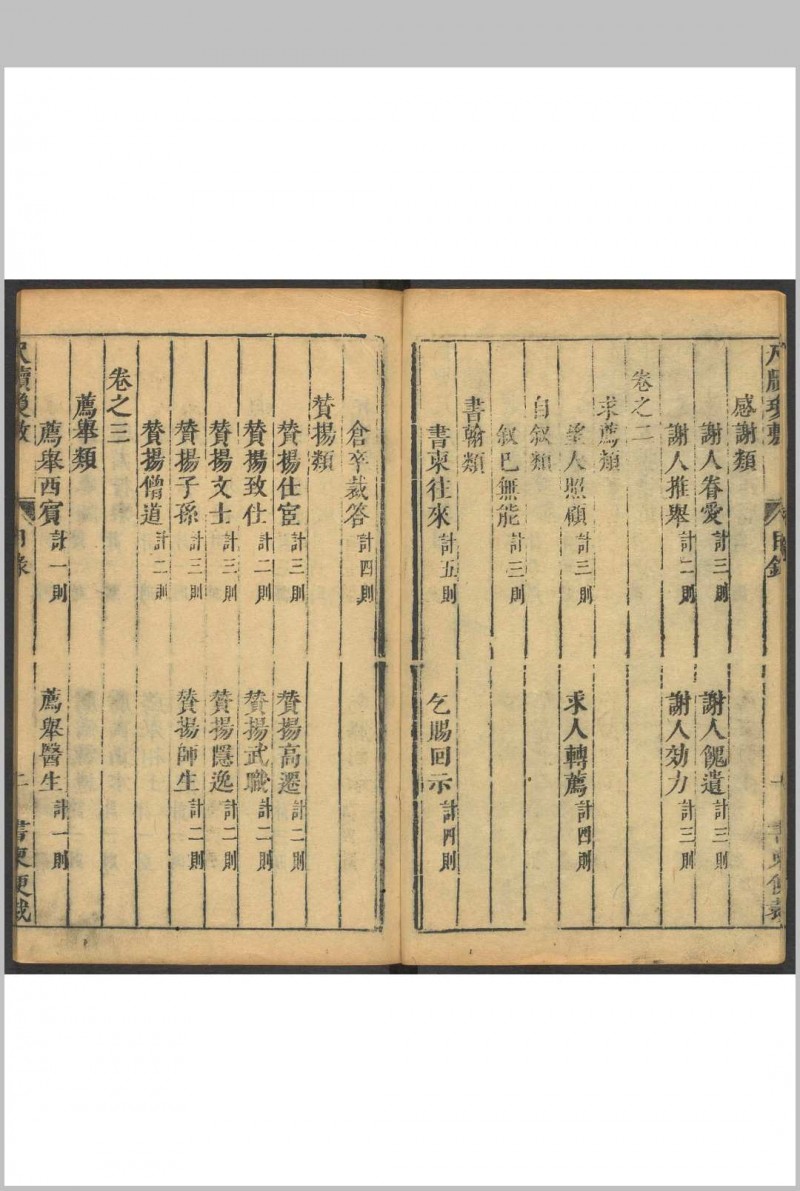 感謝類
謝人眷愛計三則 謝人餽遺計三則
謝人推舉計二則 謝人効力計三則
卷之二
求薦類
望人照顧計三則 求人轉薦計四則
自敘類
叙已無能計三則
書翰類
書柬往來計五則 乞賜回示計四則
倉卒裁答計四具
賛揚類
賛揚仕宦計三則 賛揚高遷計二則
賛揚致仕計二則 賛揚武職計二則
賛揚文士計三則 賛揚隱逸計二則
賛揚子孫計三則 賛揚師生計二則
賛揚僧道計二則
卷之三
薦舉類
薦舉西賓計一則 薦舉醫生計一則
目錄 二 書柬